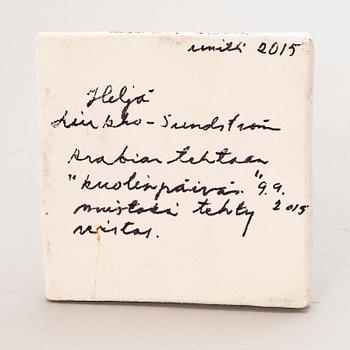 uniikki 2015
Heljä
Liukko-Sundström
Arabian tehtaan
"kuolinpäivän" 9.9.
muistoksi tehty 2015
veistos.